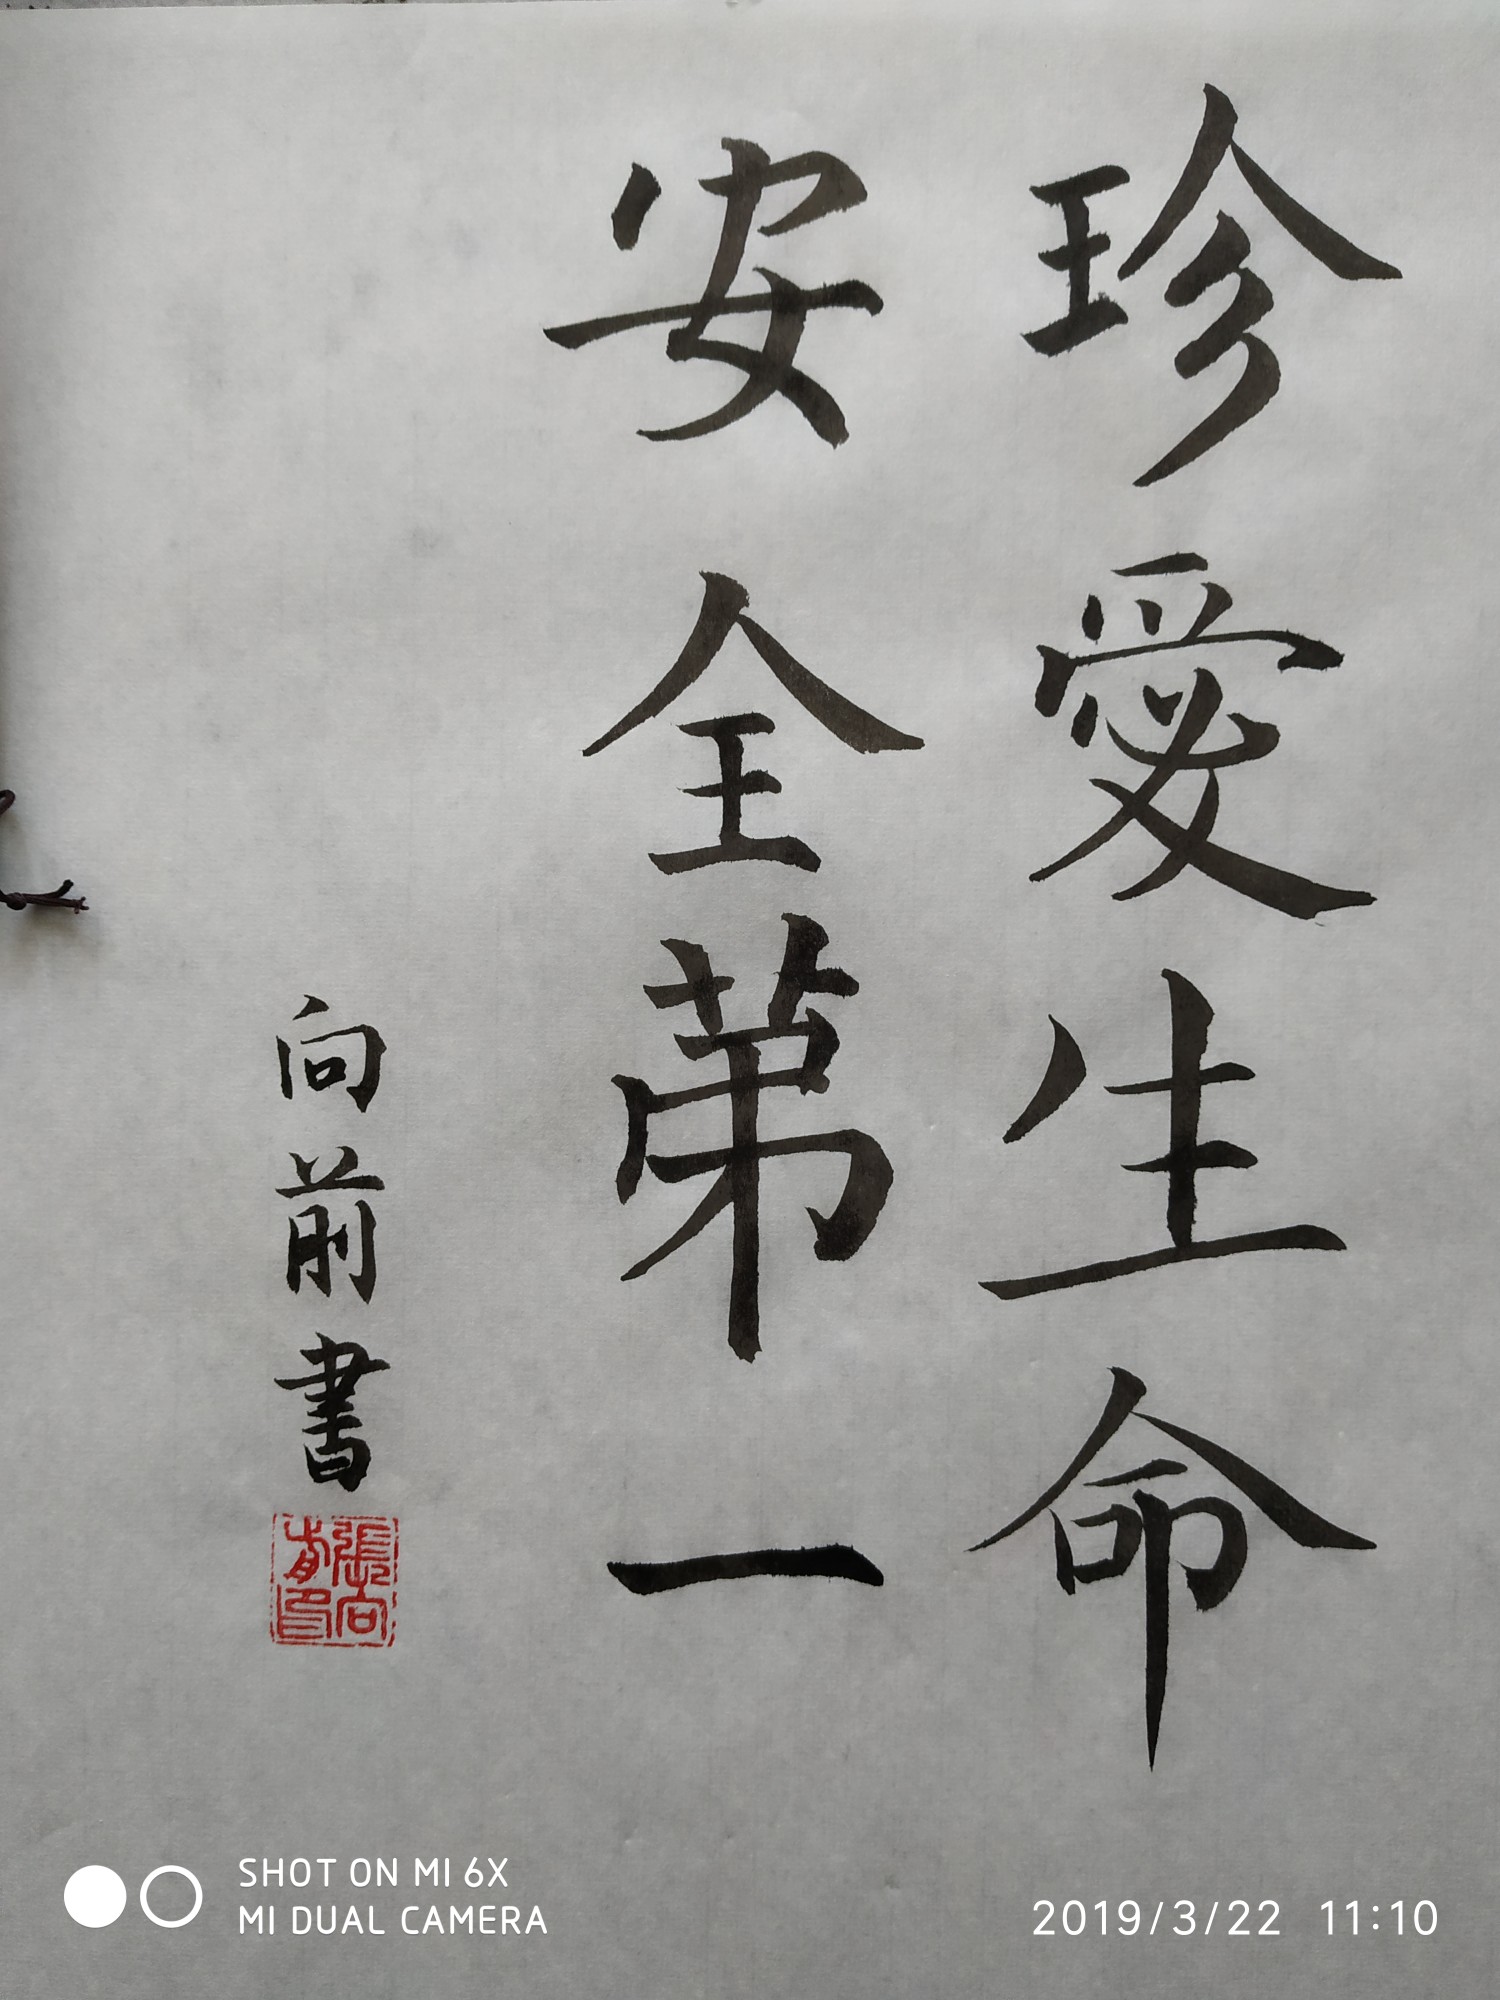 珍愛生命
安全第一
向前書
張向前印
SHOT ON MI 6X
MI DUAL CAMERA
2019/3/22 11:10